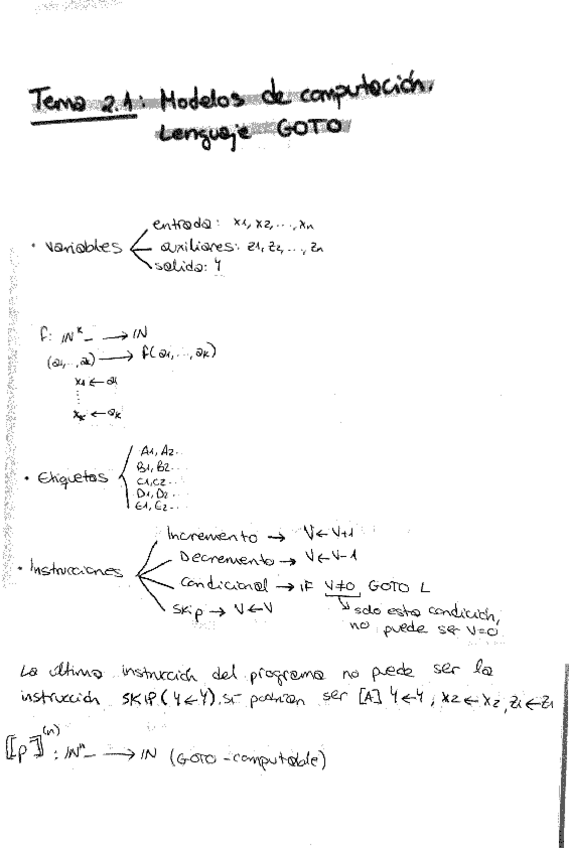 Tema 2.1: Modelos de computación.
Lenguaje GOTO
· Variables
entrada: x1, x2, ..., xn
auxiliares: z1, z2, ..., zn
salida: Y
f: IN^k_ → IN
(a1, .., ak) → f(a1, .., ak)
x1 ← a1
⋮
xk ← ak
· Etiquetas
A1, A2..
B1, B2..
C1, C2..
D1, D2..
E1, E2..
· Instrucciones
Incremento → V ← V+1
Decremento → V ← V-1
Condicional → IF V≠0 GOTO L
solo esta condición,
no puede ser V=0.
Skip → V ← V
La última instrucción del programa no puede ser la
instrucción SKIP (Y ← Y). Sí podrían ser [A] Y ← Y, x2 ← x2, z1 ← z1
[[p]]^(n) : IN^n_ → IN (GOTO-computable)